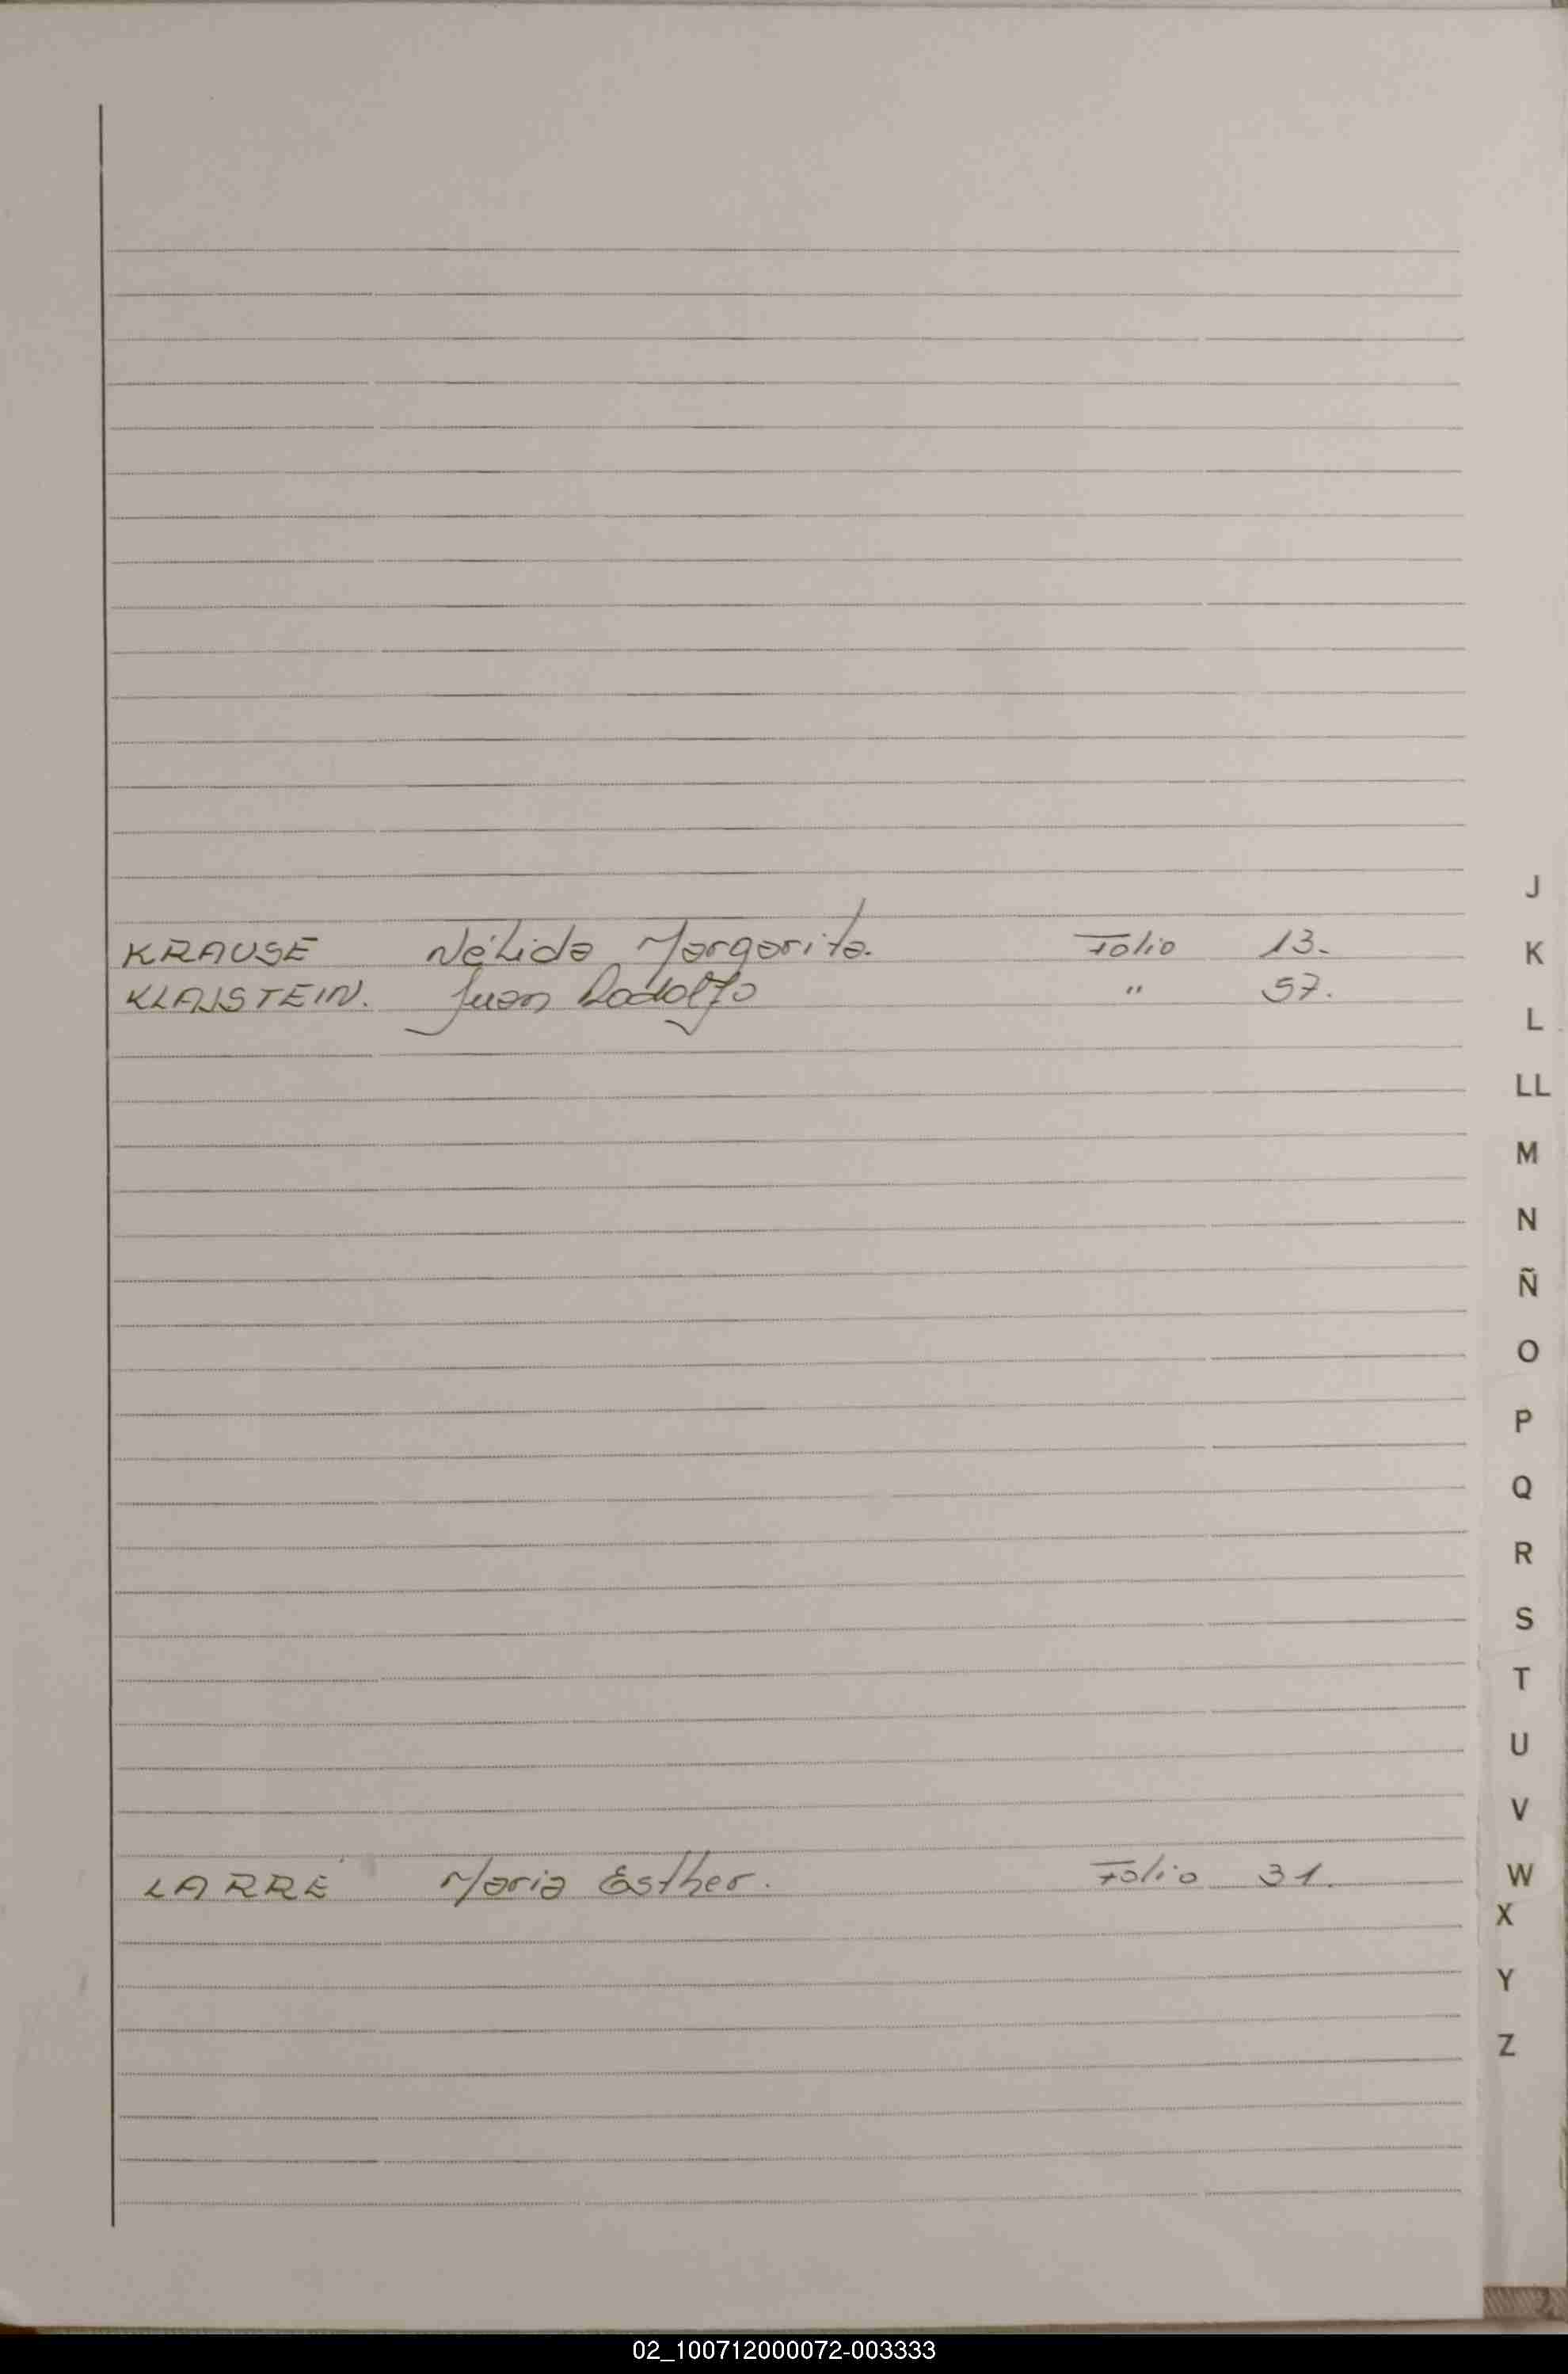 J
KRAUSE Nélida Margarita. Folio 13.
K
KLAJSTEIN. Juan Rodolfo " 57.
L
LL
M
N
Ñ
O
P
Q
R
S
T
U
V
LARRE Maria Esther. Folio 31.
W
X
Y
Z
02_100712000072-003333